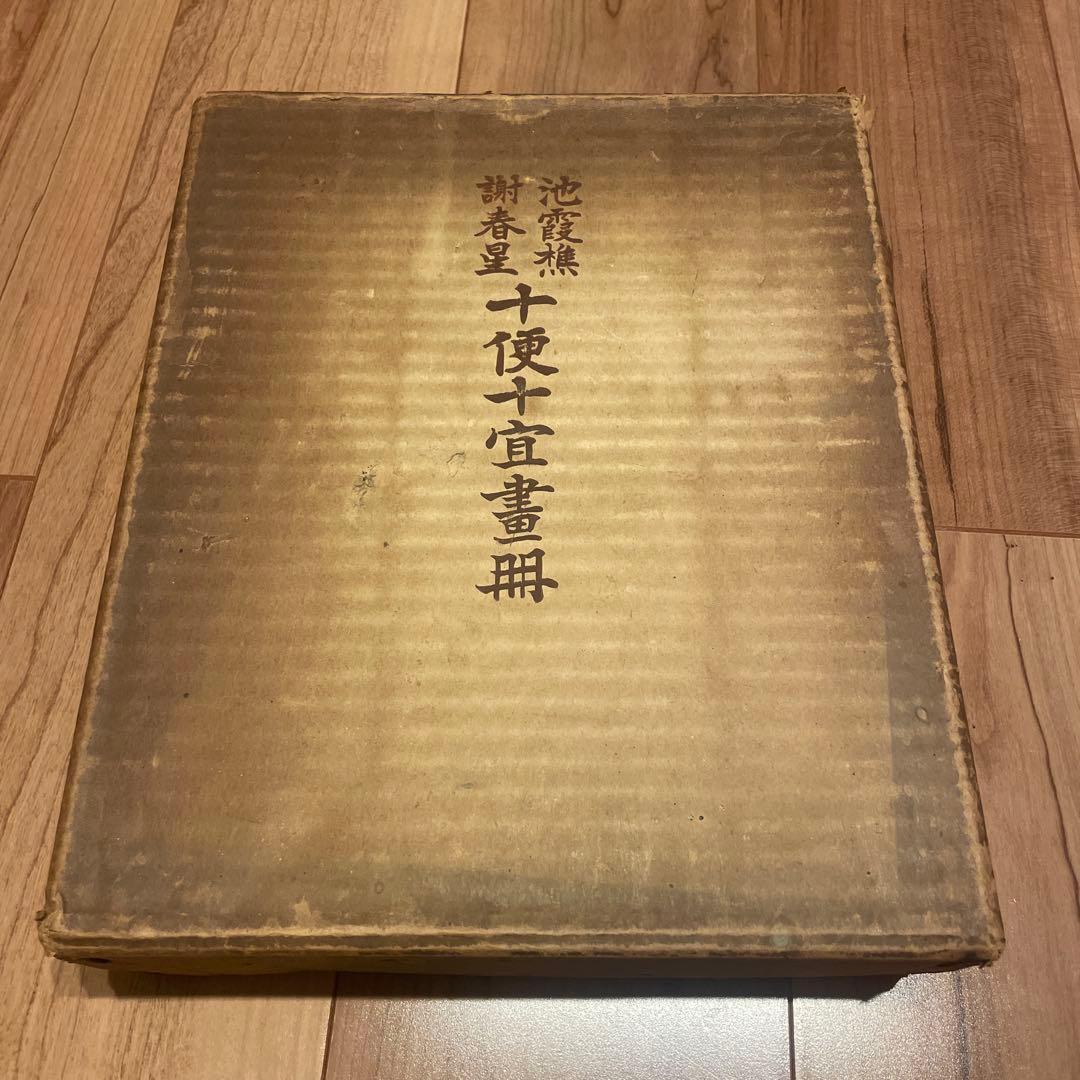 池霞樵
謝春星
十便十宜畫冊